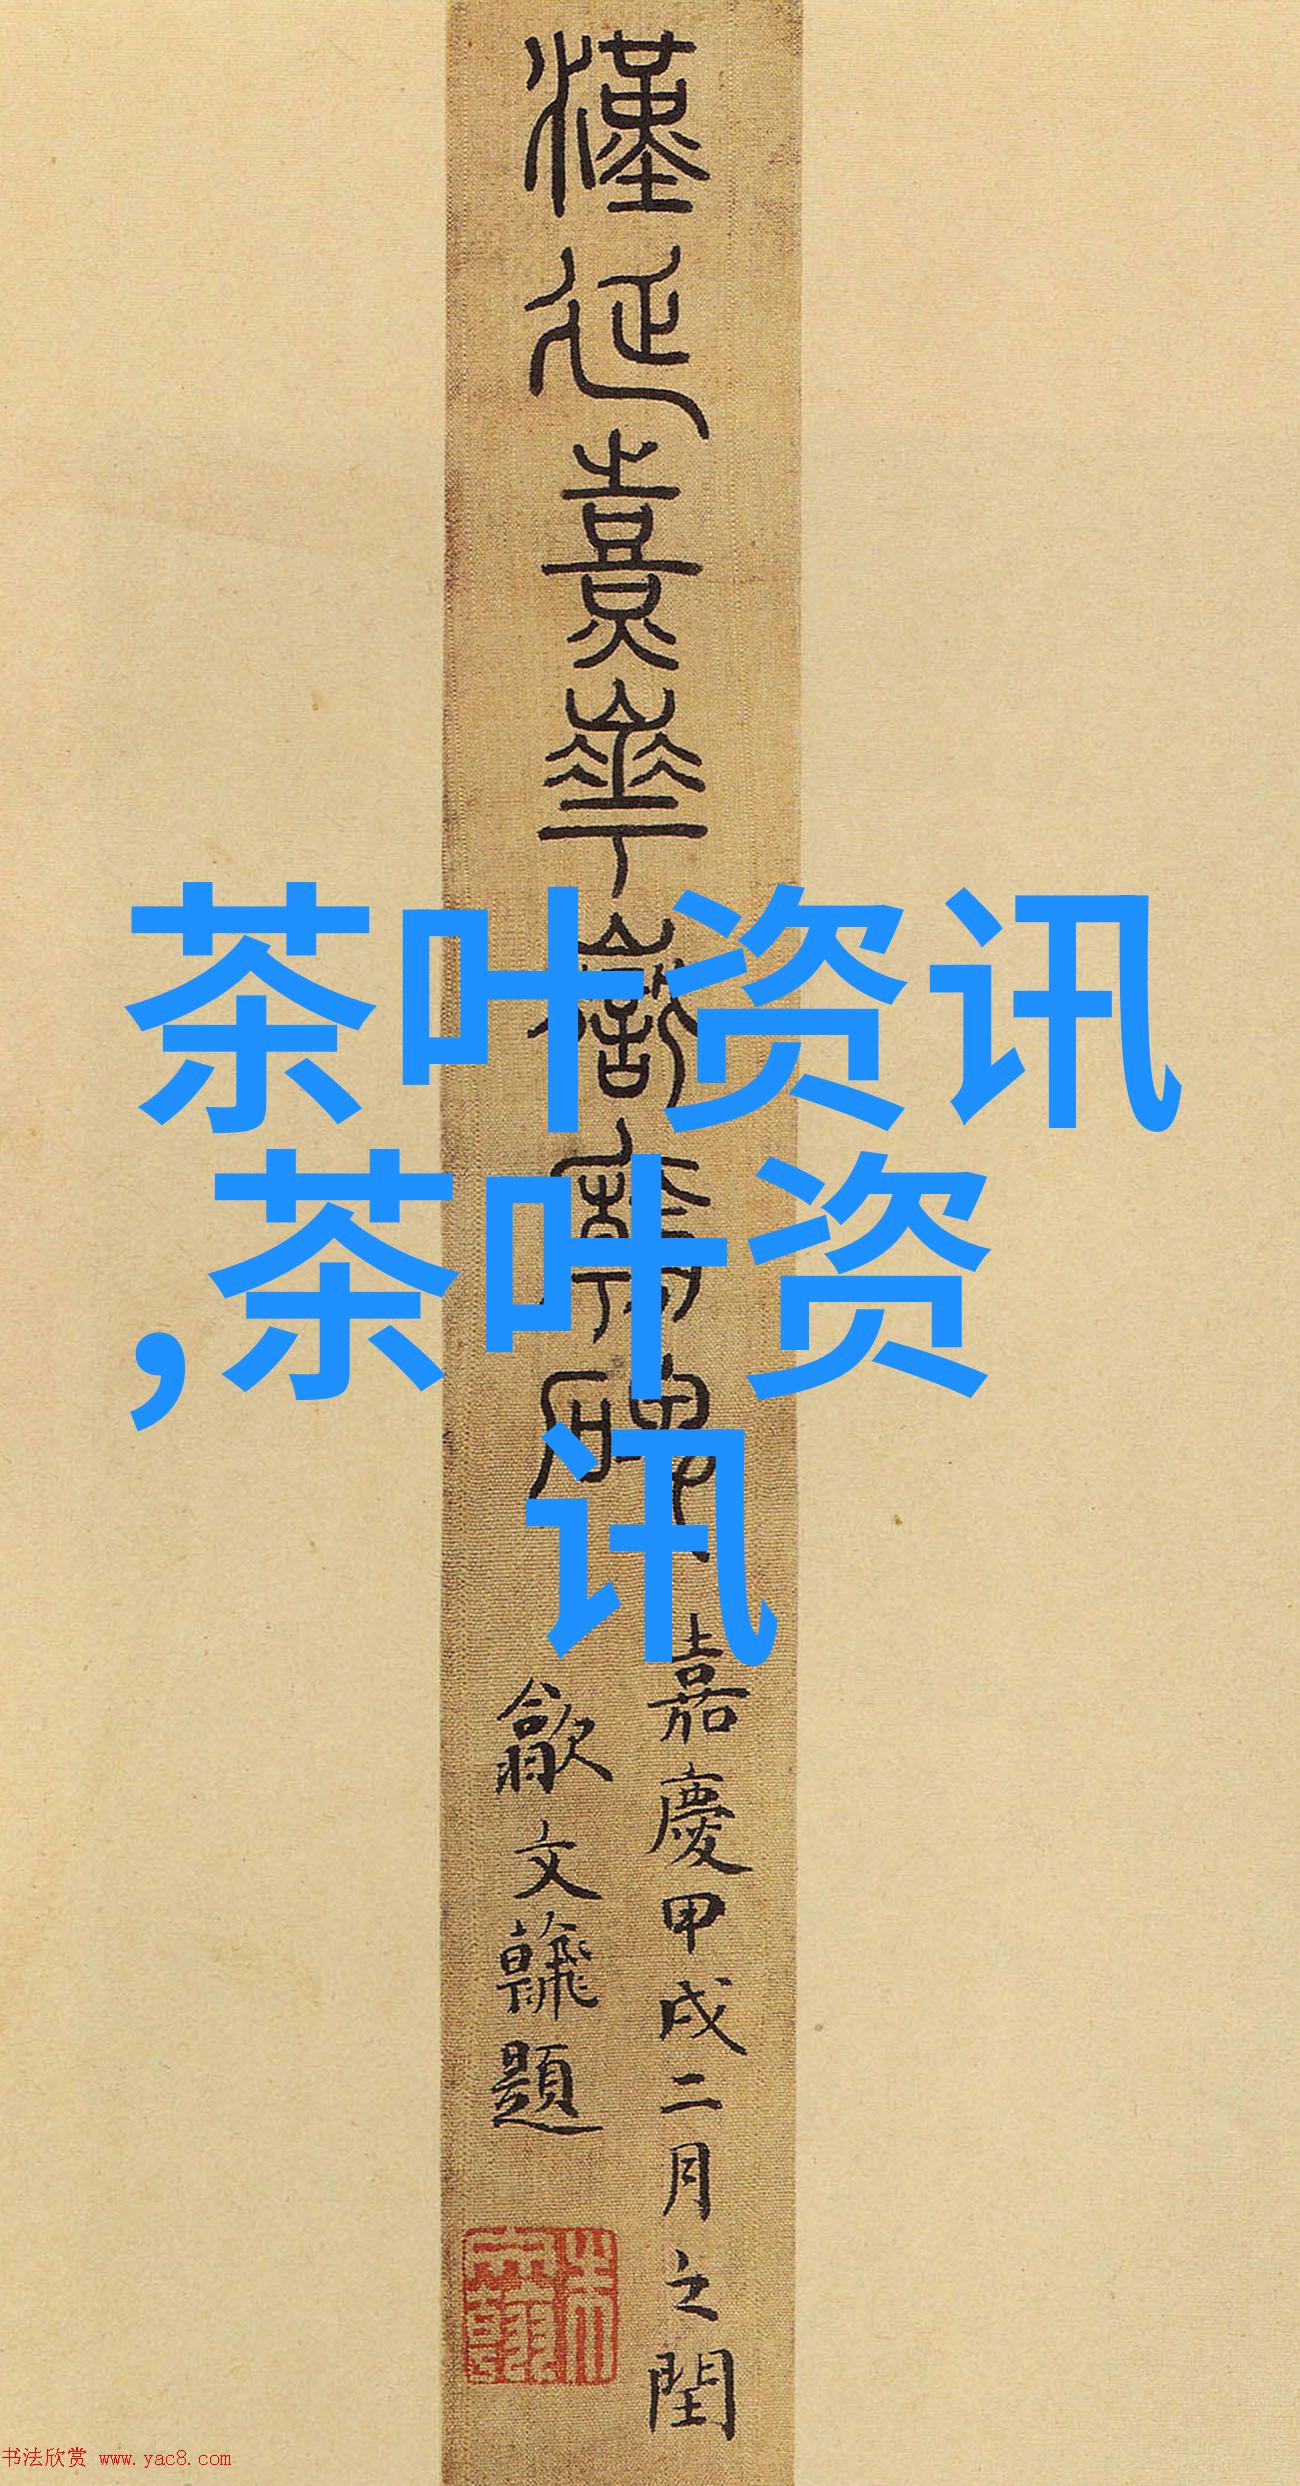 漢延熹華嶽廟碑
嘉慶甲戌二月之閏
歙文翰題
茶叶资讯
,茶叶资
讯
书法欣赏 www.yac8.com